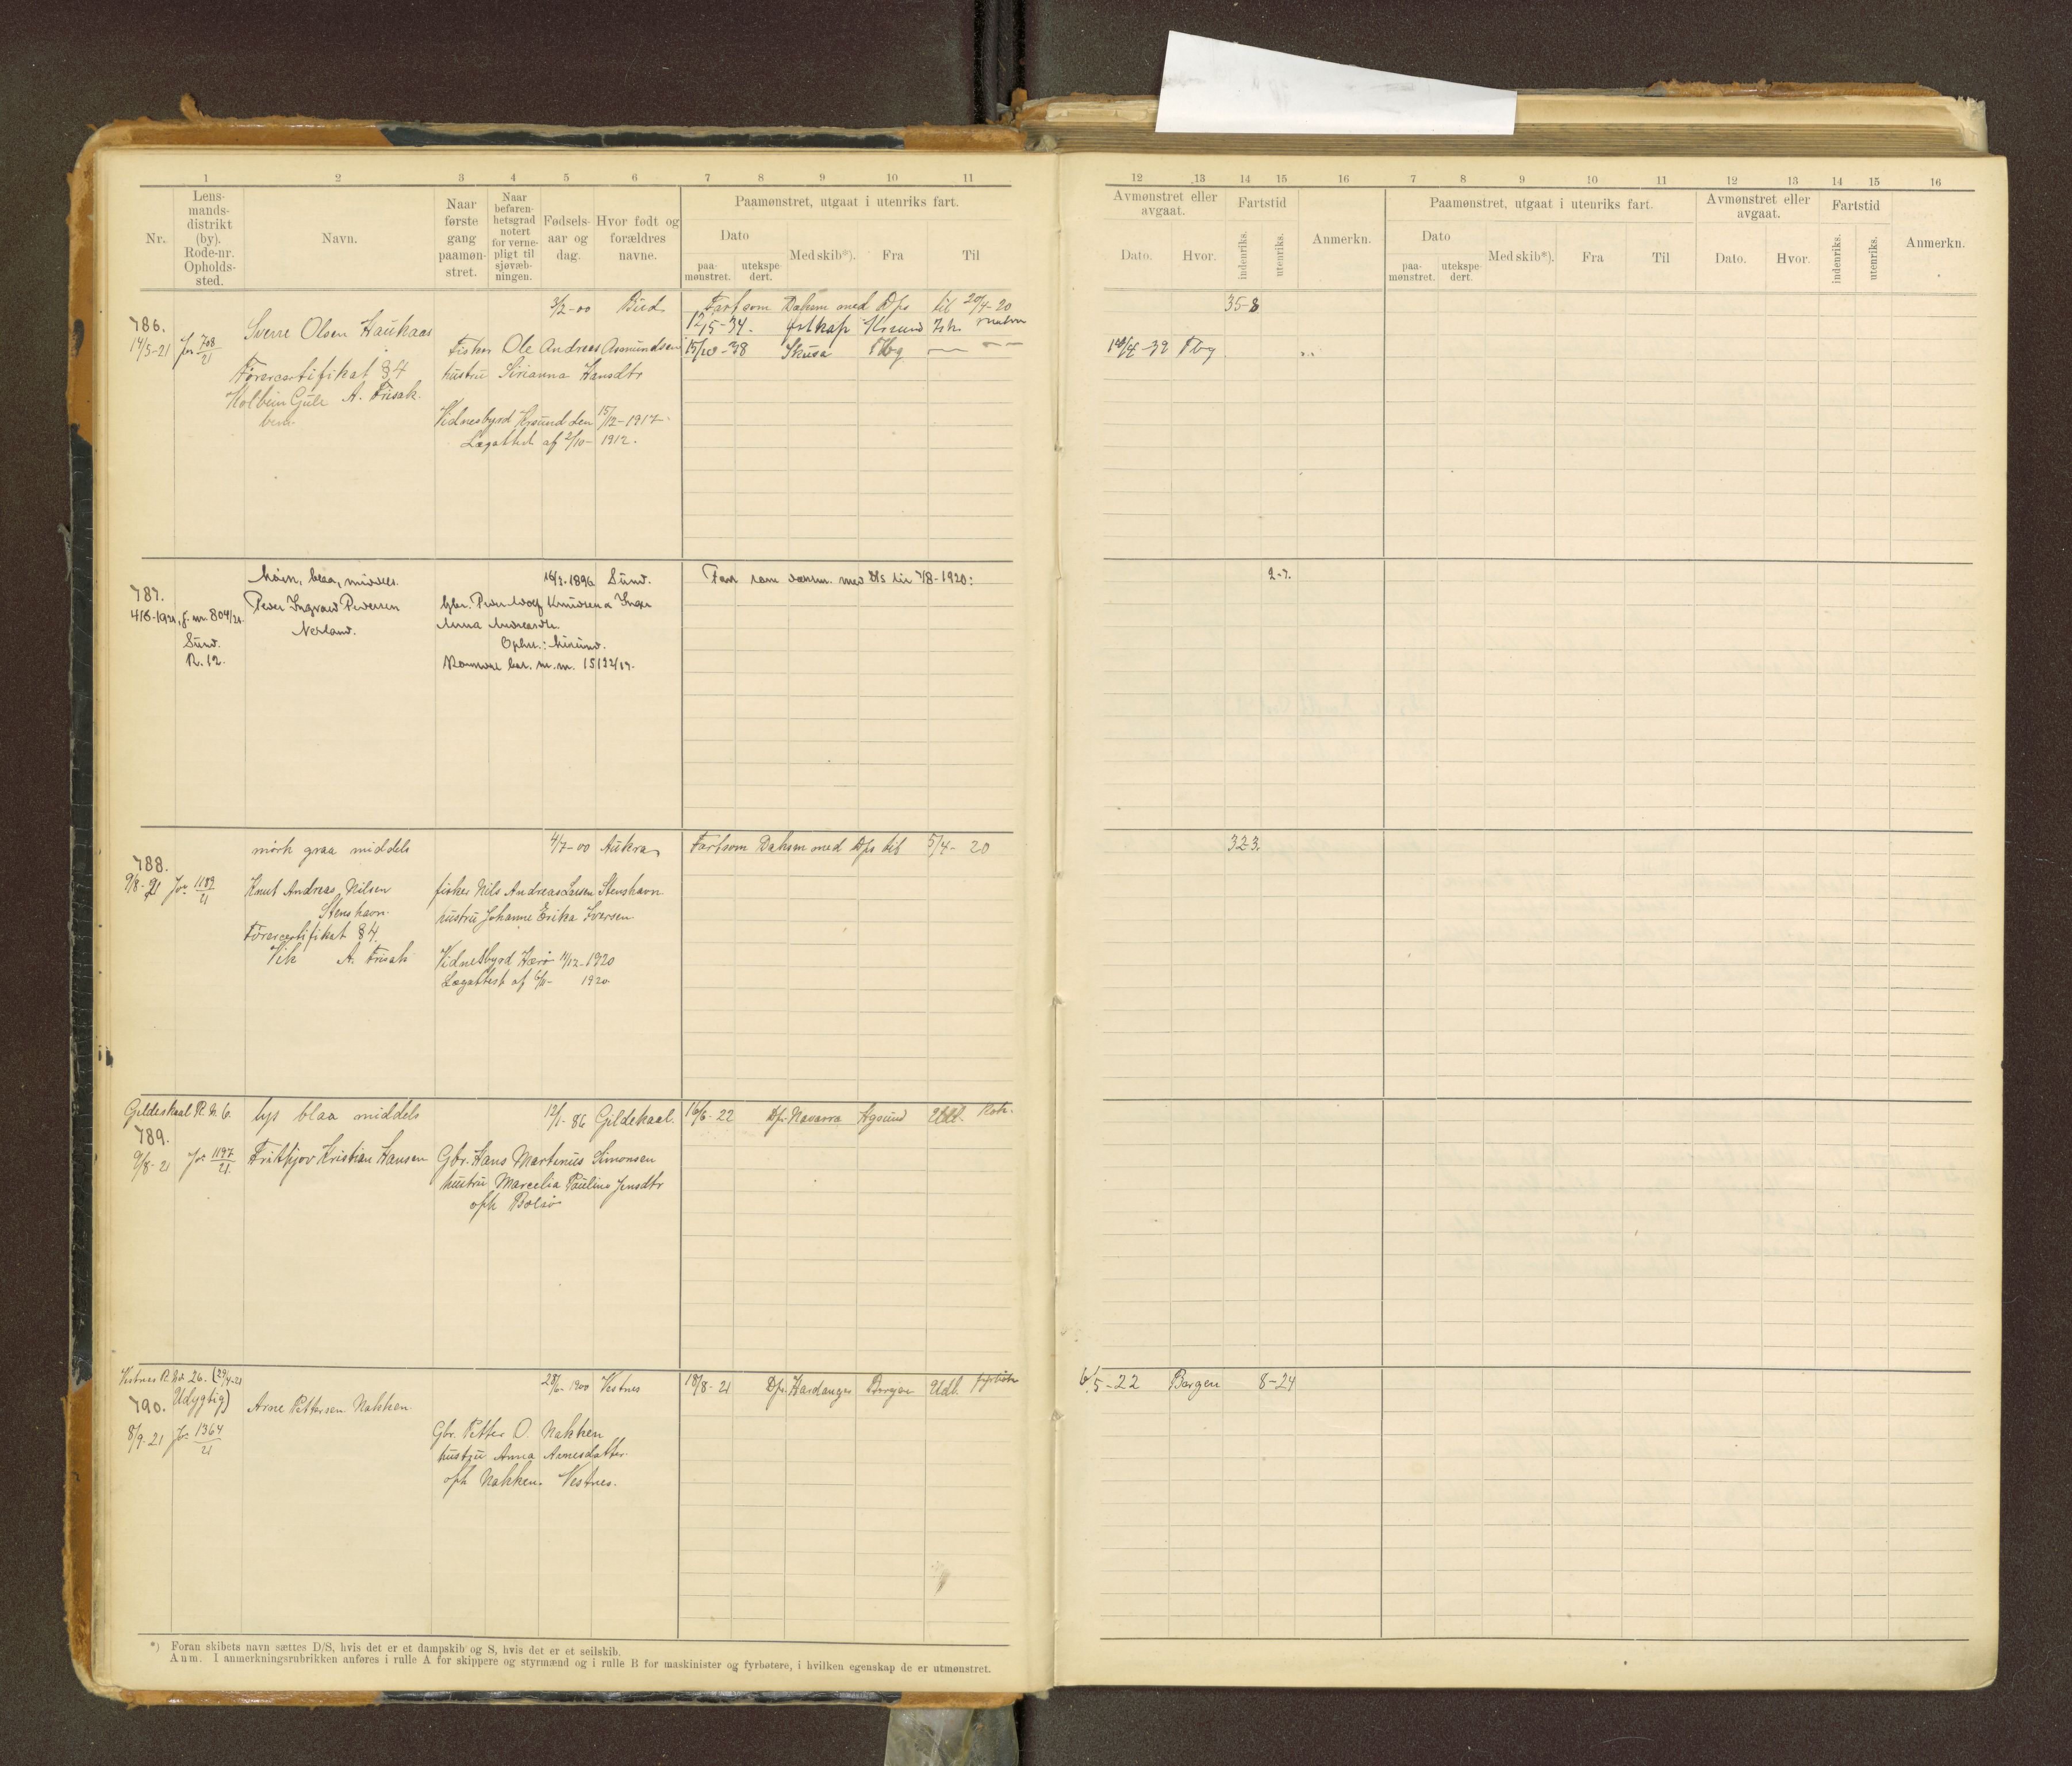 1 2 3 4 5 6 7 8 9 10 11
Nr.
Lens-
mands-
distrikt
(by).
Rode-nr.
Opholds-
sted.
Navn.
Naar
første
gang
paamøn-
stret.
Naar
befaren-
hetsgrad
notert
for verne-
pligt til
sjøvæb-
ningen.
Fødsels-
aar og
dag.
Hvor født og
forældres
navne.
Paamønstret, utgaat i utenriks fart.
Dato
paa-
mønstret.
utekspe
dert.
Med skib*).
Fra
Til
786.
14/5-21 Jnr 708/21
Sverre Olsen Haukaas
Førercertifikat §4
A. Frisak.
3/2-00 Bud
Fisker Ole Andreas Asmundsen
hustru Sirianna Hansdtr
Vidnesbyrd Krsund den 15/12-1917
Lægattest af 2/10-1912.
Fart som Dæksm med D/s til 20/4-20
12/5-34. Krsund
15/10-38 Skusa Tbg
787.
4/6-1921, j.nr. 804/21.
Sund.
R. 12.
blaa, middels.
Peder Ingvald Pedersen
Nerland.
1896 Sund.
Gbr. Peder Knudsen a Inger
Anna Andreasdtr.
Fart som dæksm. med D/s til 7/8-1920:
788.
9/8-21 Jnr 1189/21
mørk graa middels
Knut Andreas Nilsen
Stenshavn.
Førercertifikat §4.
Vik A. Frisak
4/7-00 Aukra
fisker Nils Andreas Larsen Stenshavn
hustru Johanne Erika Iversen.
Vidnesbyrd Harø 11/12-1920
Lægattest af 6/11- 1920
Fart som Dæksm med D/s til 5/4-20
Gildeskaal R. N. 6.
789.
9/8-21 Jnr 1197/21
lys blaa middels
Fridtjov Kristian Hansen
12/1-86 Gildekaal.
Gbr. Hans Martinus Simonsen
hustru Marcelia Pauline Jensdtr
oph Bolsø
16/6-22 D/s Navarra Agsund Udl.
Vestnes R. Nr 26. (29/4-21
Udygtig)
790.
8/9-21 Jnr 1364/21
Arne Pettersen Nakken
28/6-1900 Vestnes
Gbr. Petter O. Nakken
hustru Anna Arnesdatter
oph Nakken. Vestnes.
18/8-21 D/s Hardanger Bergen Udl. fyrbøter
*) Foran skibets navn sættes D/S, hvis det er et dampskib og S, hvis det er et seilskib.
Anm. I anmerkningsrubrikken anføres i rulle A for skippere og styrmænd og i rulle B for maskinister og fyrbøtere, i hvilken egenskap de er utmønstret.
12 13 14 15 16 7 8 9 10 11 12 13 14 15 16
Avmønstret eller
avgaat.
Dato.
Hvor.
Fartstid
indenriks.
utenriks.
Anmerkn.
Paamønstret, utgaat i utenriks fart.
Dato
paa-
mønstret.
utekspe
dert.
Med skib*).
Fra
Til
Avmønstret eller
avgaat.
Dato.
Hvor.
Fartstid
indenriks.
utenriks.
Anmerkn.
35-8
14/4-39 Tbg
2-7.
32-3.
6/5-22 Bergen 8-24